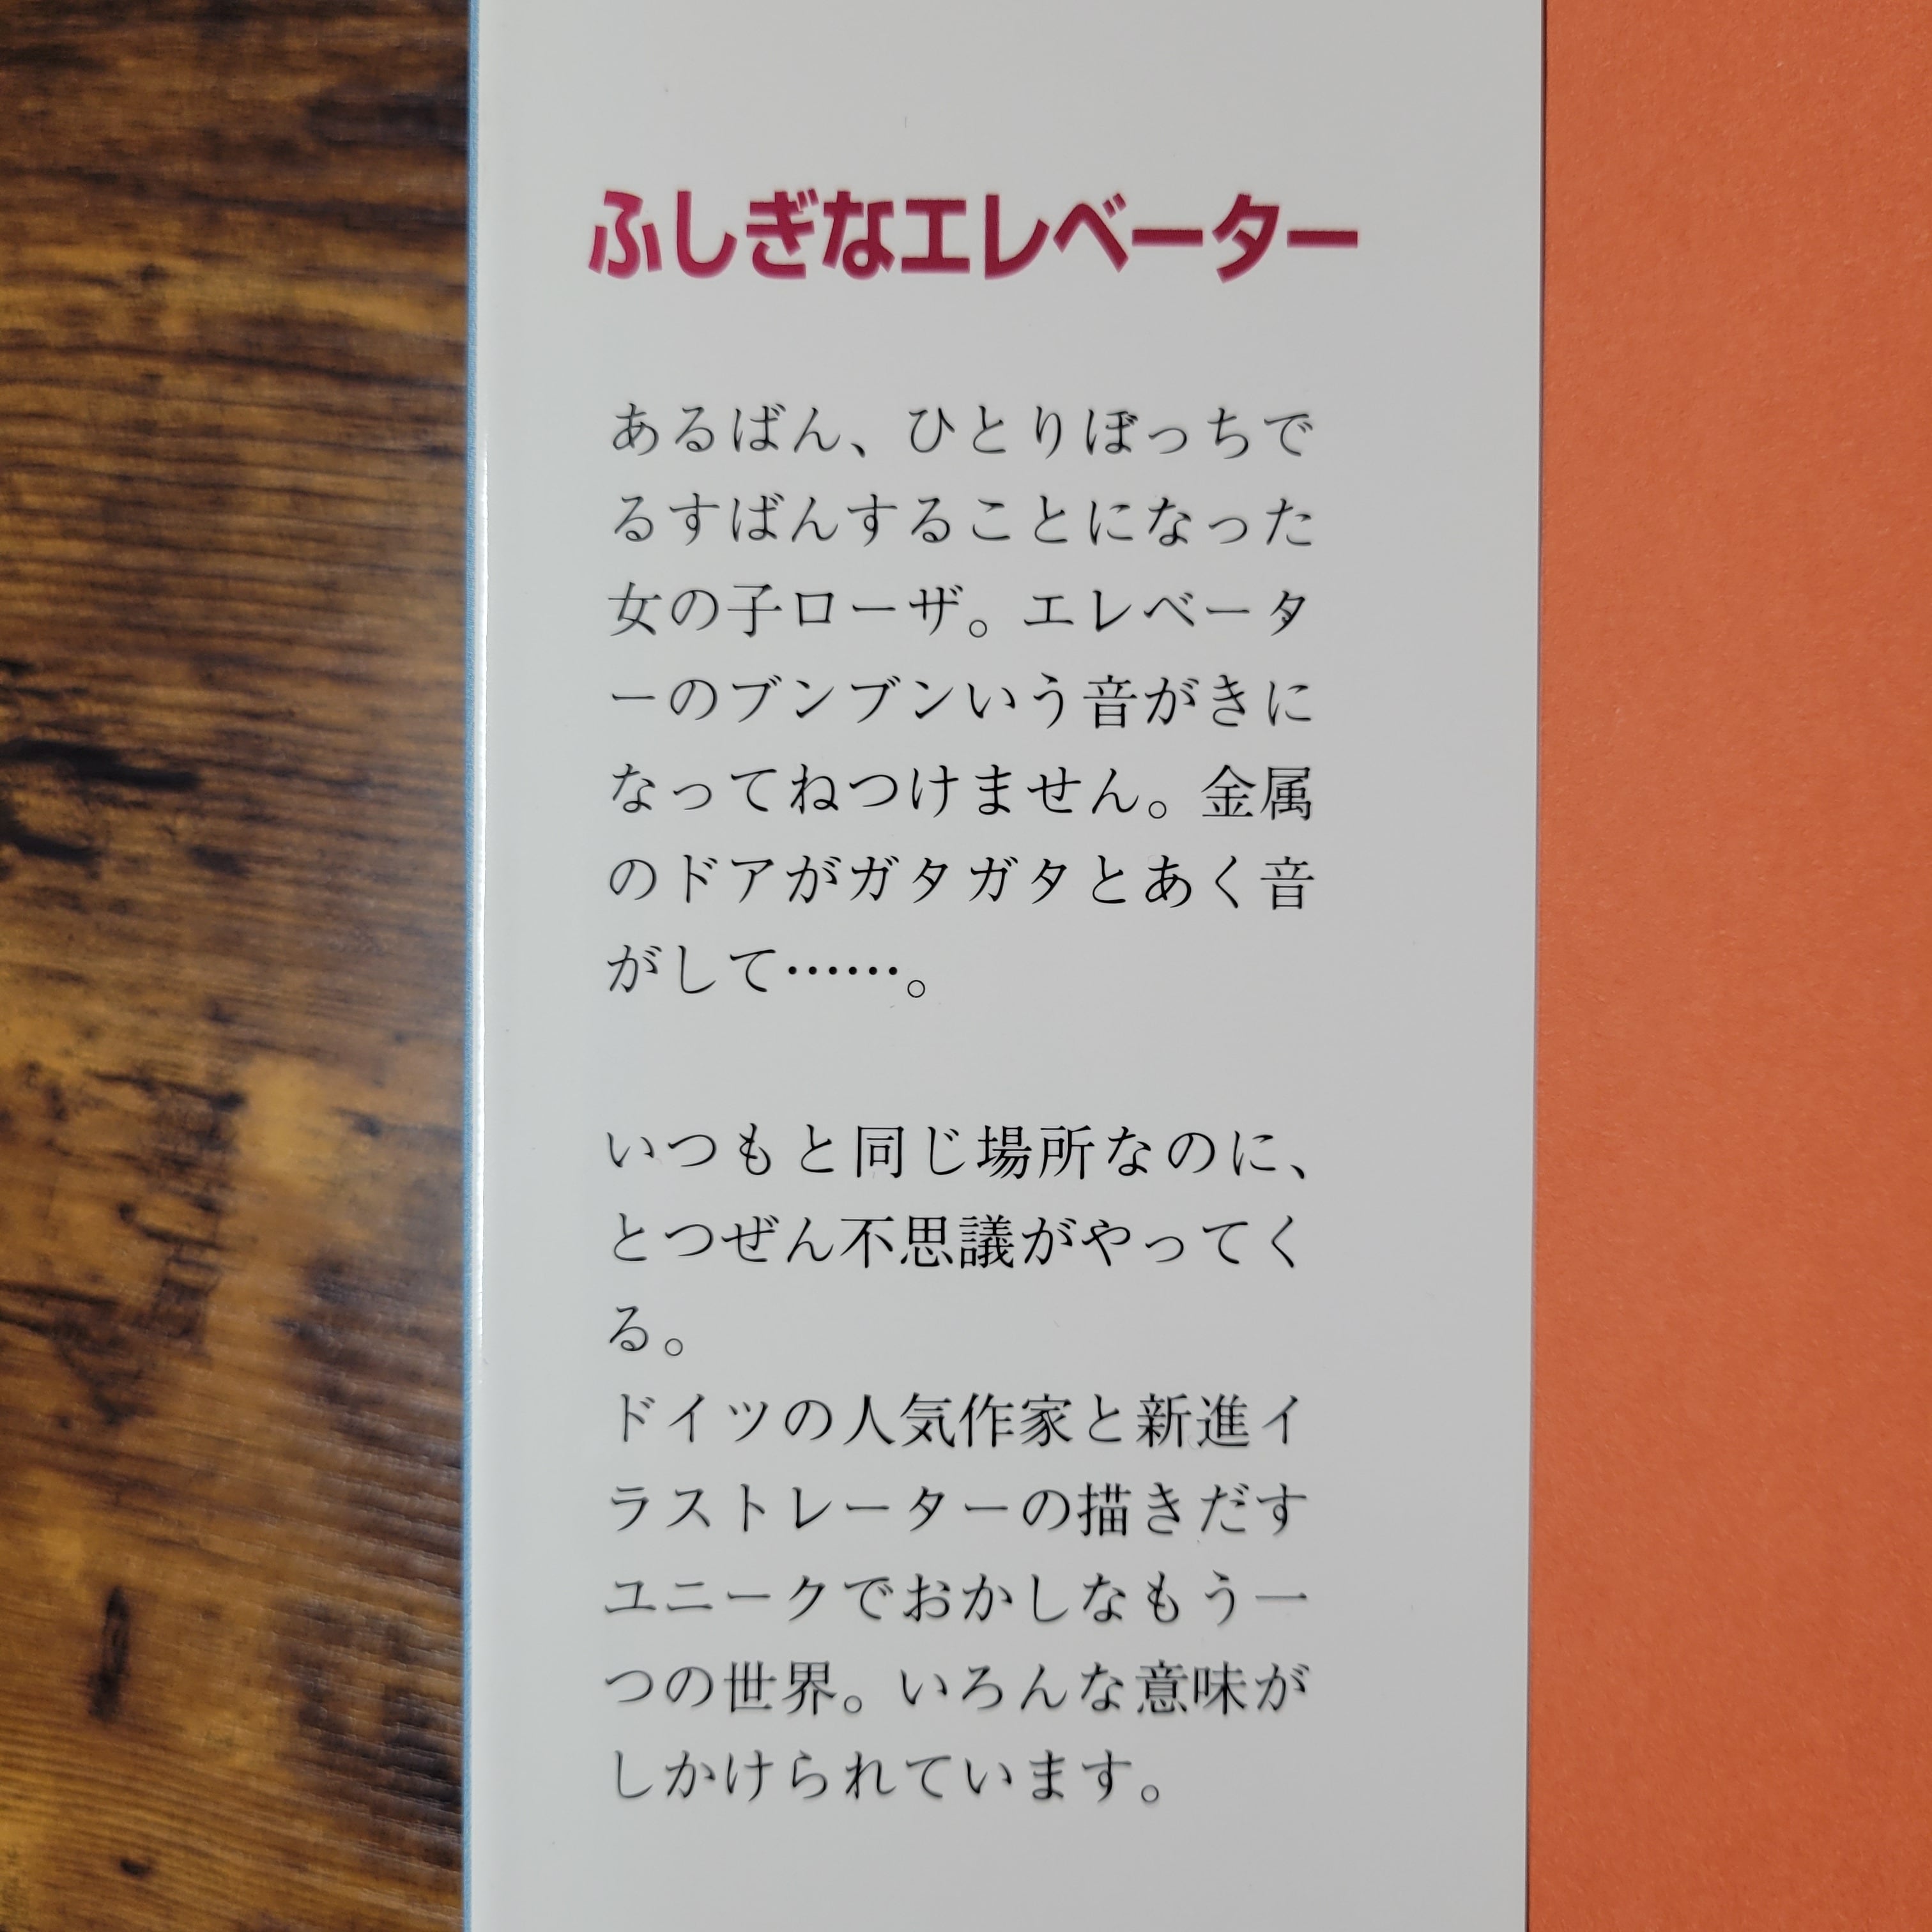 ふしぎなエレベーター
あるばん、ひとりぼっちで
るすばんすることになった
女の子ローザ。エレベータ
ーのブンブンいう音がきに
なってねつけません。金属
のドアがガタガタとあく音
がして……。
いつもと同じ場所なのに、
とつぜん不思議がやってく
る。
ドイツの人気作家と新進イ
ラストレーターの描きだす
ユニークでおかしなもう一
つの世界。いろんな意味が
しかけられています。